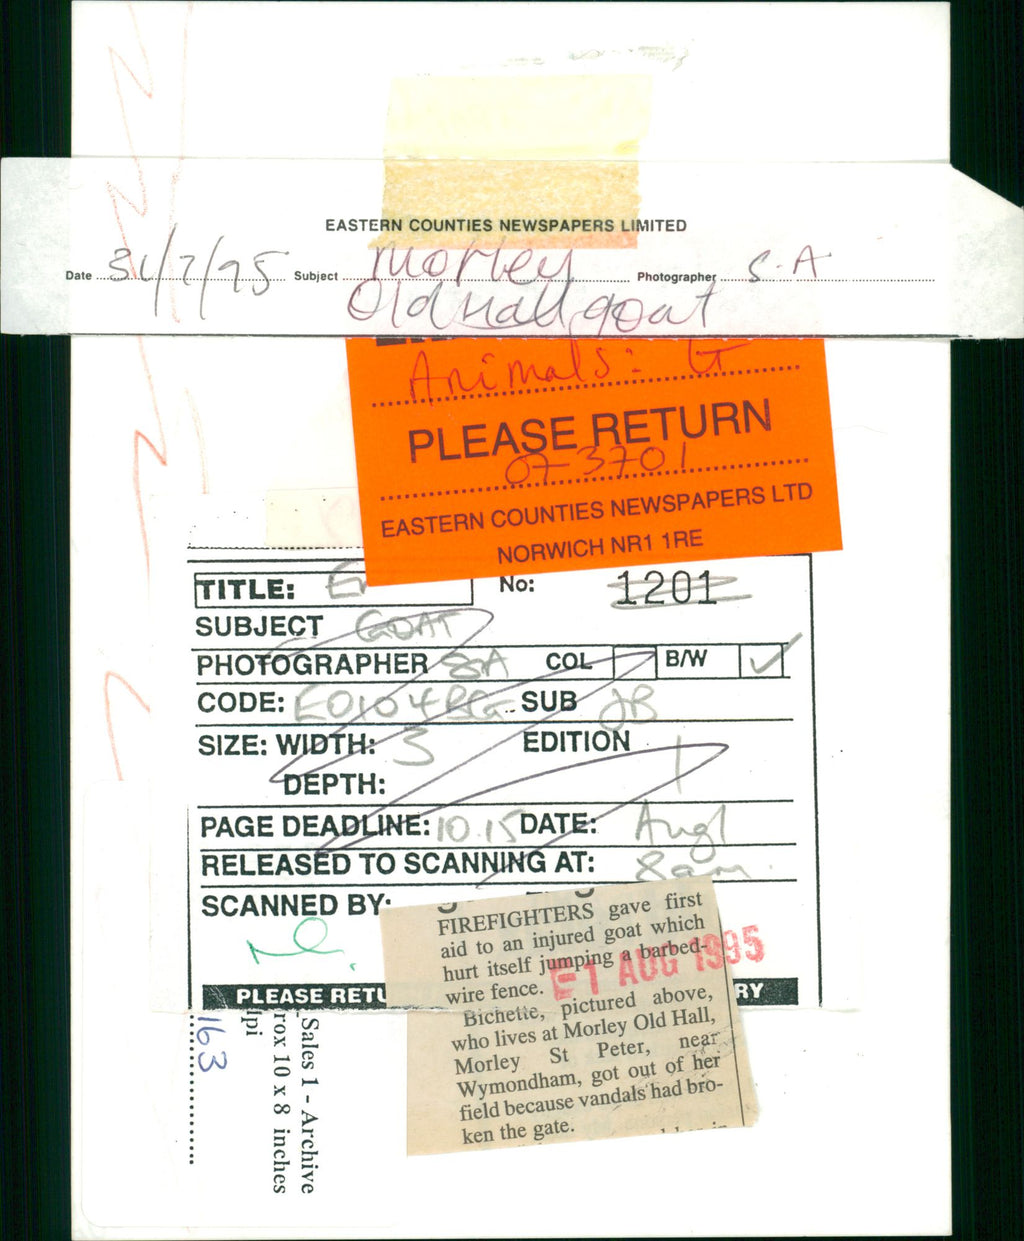 EASTERN COUNTIES NEWSPAPERS LIMITED
Date 31/7/95 Subject Morley Photographer S.A
Old Hall goat
Animals: G
PLEASE RETURN
07-3701
EASTERN COUNTIES NEWSPAPERS LTD
NORWICH NR1 1RE
TITLE: No: 1201
SUBJECT GOAT
PHOTOGRAPHER SA COL B/W ✓
CODE: E0104BCG SUB JB
SIZE: WIDTH: 3 EDITION 1
DEPTH:
PAGE DEADLINE: 10.15 DATE: Aug 1
RELEASED TO SCANNING AT: 8am.
SCANNED BY:
PLEASE RETU RY
FIREFIGHTERS gave first
aid to an injured goat which
hurt itself jumping a barbed-
wire fence.
E1 AUG 1995
Bichette, pictured above,
who lives at Morley Old Hall,
Morley St Peter, near
Wymondham, got out of her
field because vandals had bro-
ken the gate.
Sales 1 - Archive
rox 10 x 8 inches
lpi
163